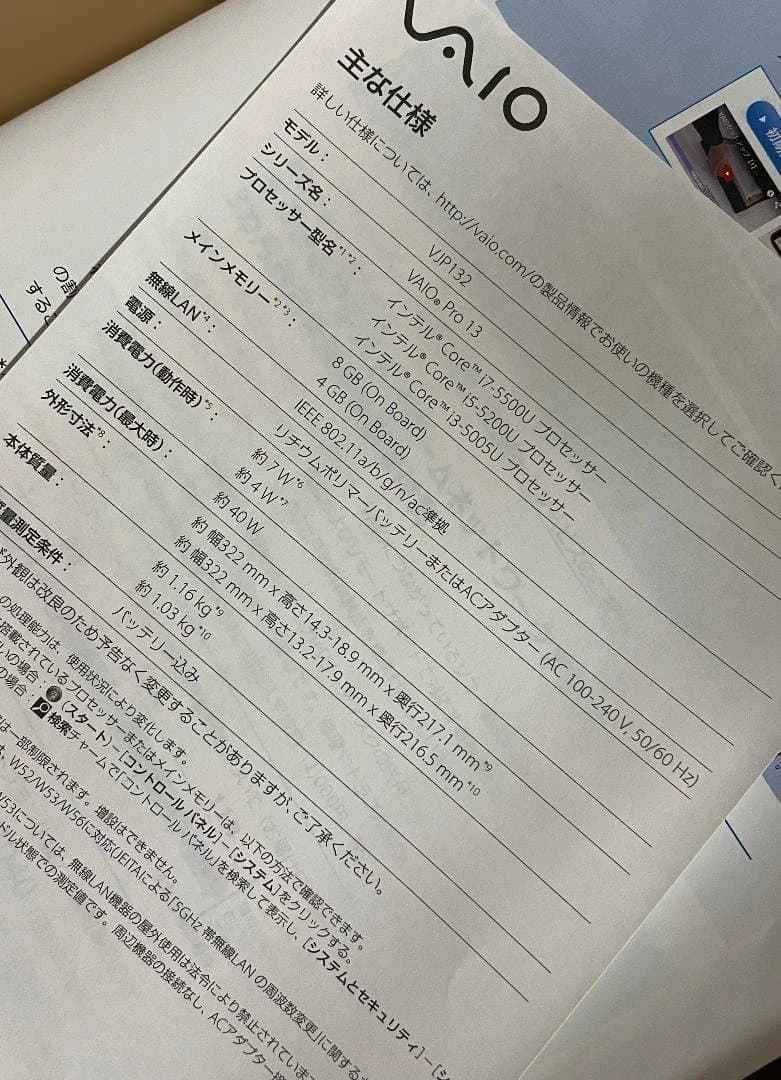 VAIO
主な仕様
詳しい仕様については、http://vaio.com/の製品情報でお使いの機種を選択してご確認く
モデル： VJP132
シリーズ名： VAIO® Pro 13
プロセッサー型名*1*2： インテル® Core™ i7-5500U プロセッサー
インテル® Core™ i5-5200U プロセッサー
インテル® Core™ i3-5005U プロセッサー
メインメモリー*2*3： 8 GB (On Board)
4 GB (On Board)
無線LAN*4： IEEE 802.11a/b/g/n/ac準拠
電源： リチウムポリマーバッテリーまたはACアダプター (AC 100-240 V, 50/60 Hz)
消費電力(動作時)*5： 約 7 W*6
約 4 W*7
消費電力(最大時)： 約 40 W
外形寸法*8： 約 幅322 mm x 高さ14.3-18.9 mm x 奥行217.1 mm*9
約 幅322 mm x 高さ13.2-17.9 mm x 奥行216.5 mm*10
本体質量： 約 1.16 kg*9
約 1.03 kg*10
質量測定条件： バッテリー込み
外観は改良のため予告なく変更することがありますが、ご了承ください。
の処理能力は、使用状況により変化します。
搭載されているプロセッサーまたはメインメモリーは、以下の方法で確認できます。
いの場合： (スタート)－[コントロールパネル]－[システム]をクリックする。
の場合： 検索チャームで「コントロールパネル」を検索して表示し、[システムとセキュリティ]－[シ
は一部制限されます。増設はできません。
は、W52/W53/W56に対応(JEITAによる「5GHz 帯無線LAN の周波数変更」に関する
W53については、無線LAN機器の屋外使用は法令により禁止されていま
ドル状態での測定値です。周辺機器の接続なし、ACアダプター
の割
する
初期